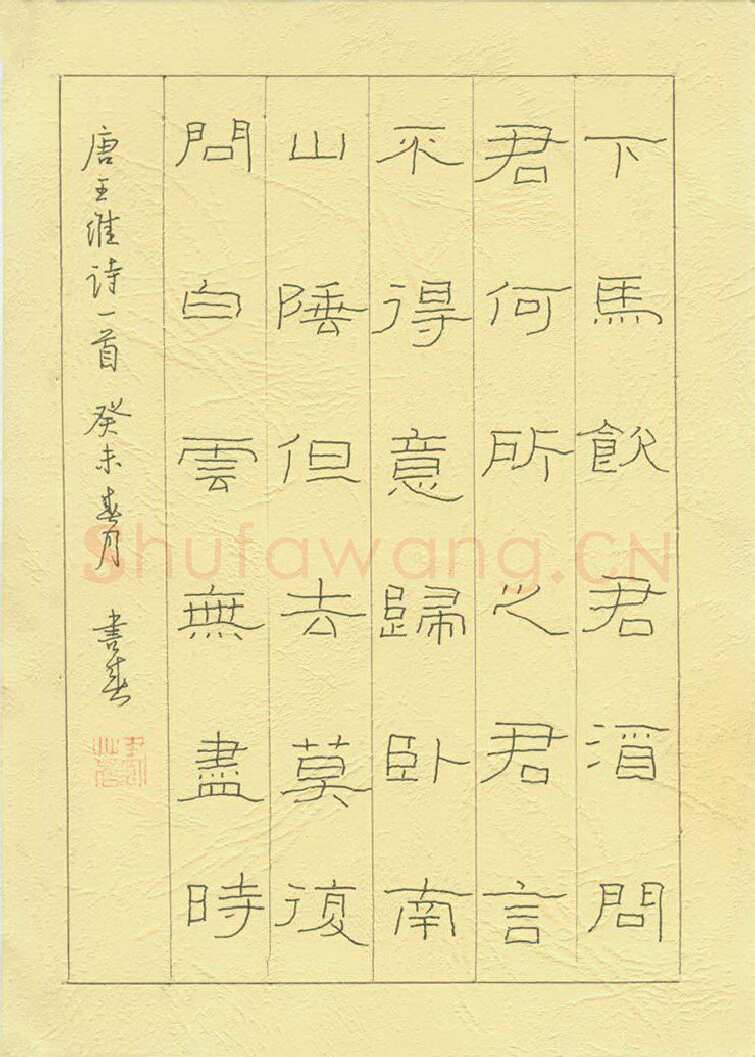 下馬飲君酒問
君何所之君言
不得意歸卧南
山陲但去莫復
問白雲無盡時
唐王維诗一首 癸未春月 書春
Shufawang.CN